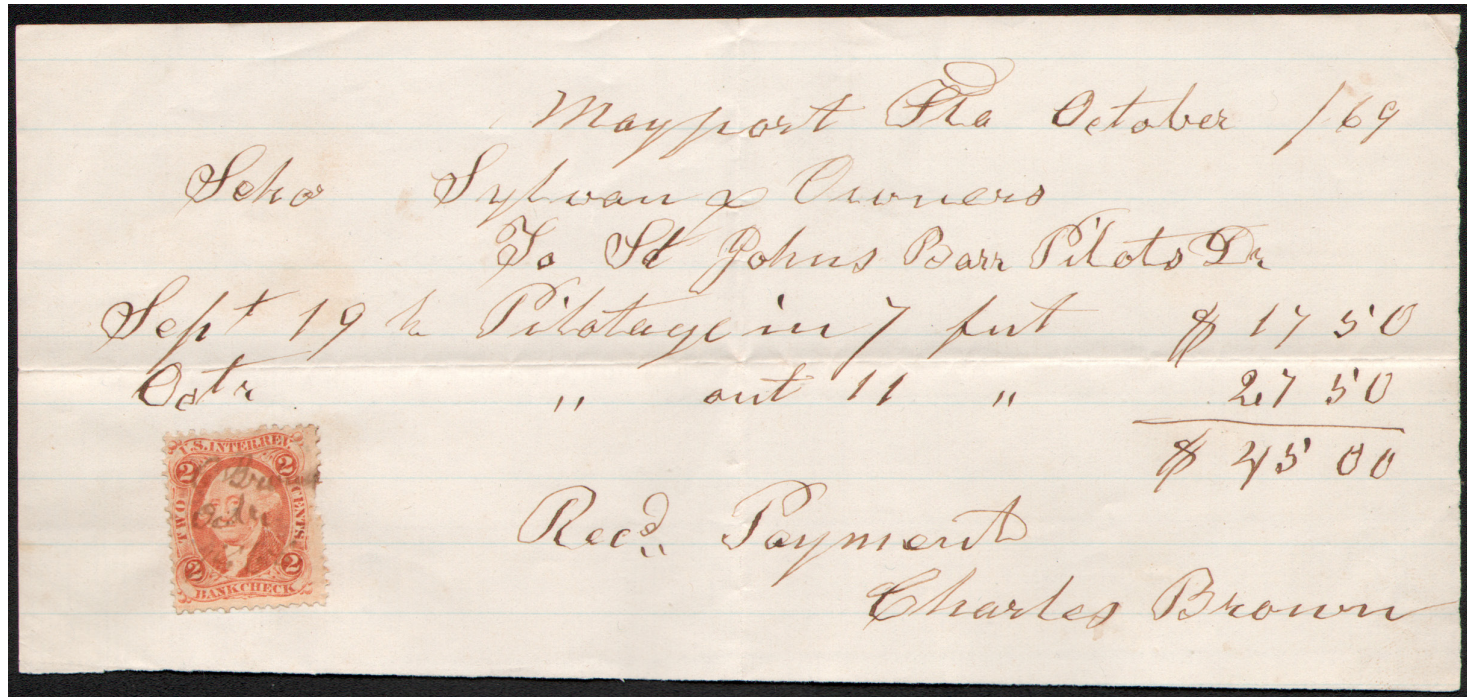 Mayport Fla October /69
Schr Sylvan & Owners
To St Johns Barr Pilots Dr
Sept 19th Pilotage in 7 feet $17 50
Octr " out 11 " 27 50
$45 00
Recd Payment
Charles Brown
U.S. INTER. REV.
2 2
TWO CENTS.
2 2
BANK CHECK
Brown
Octr